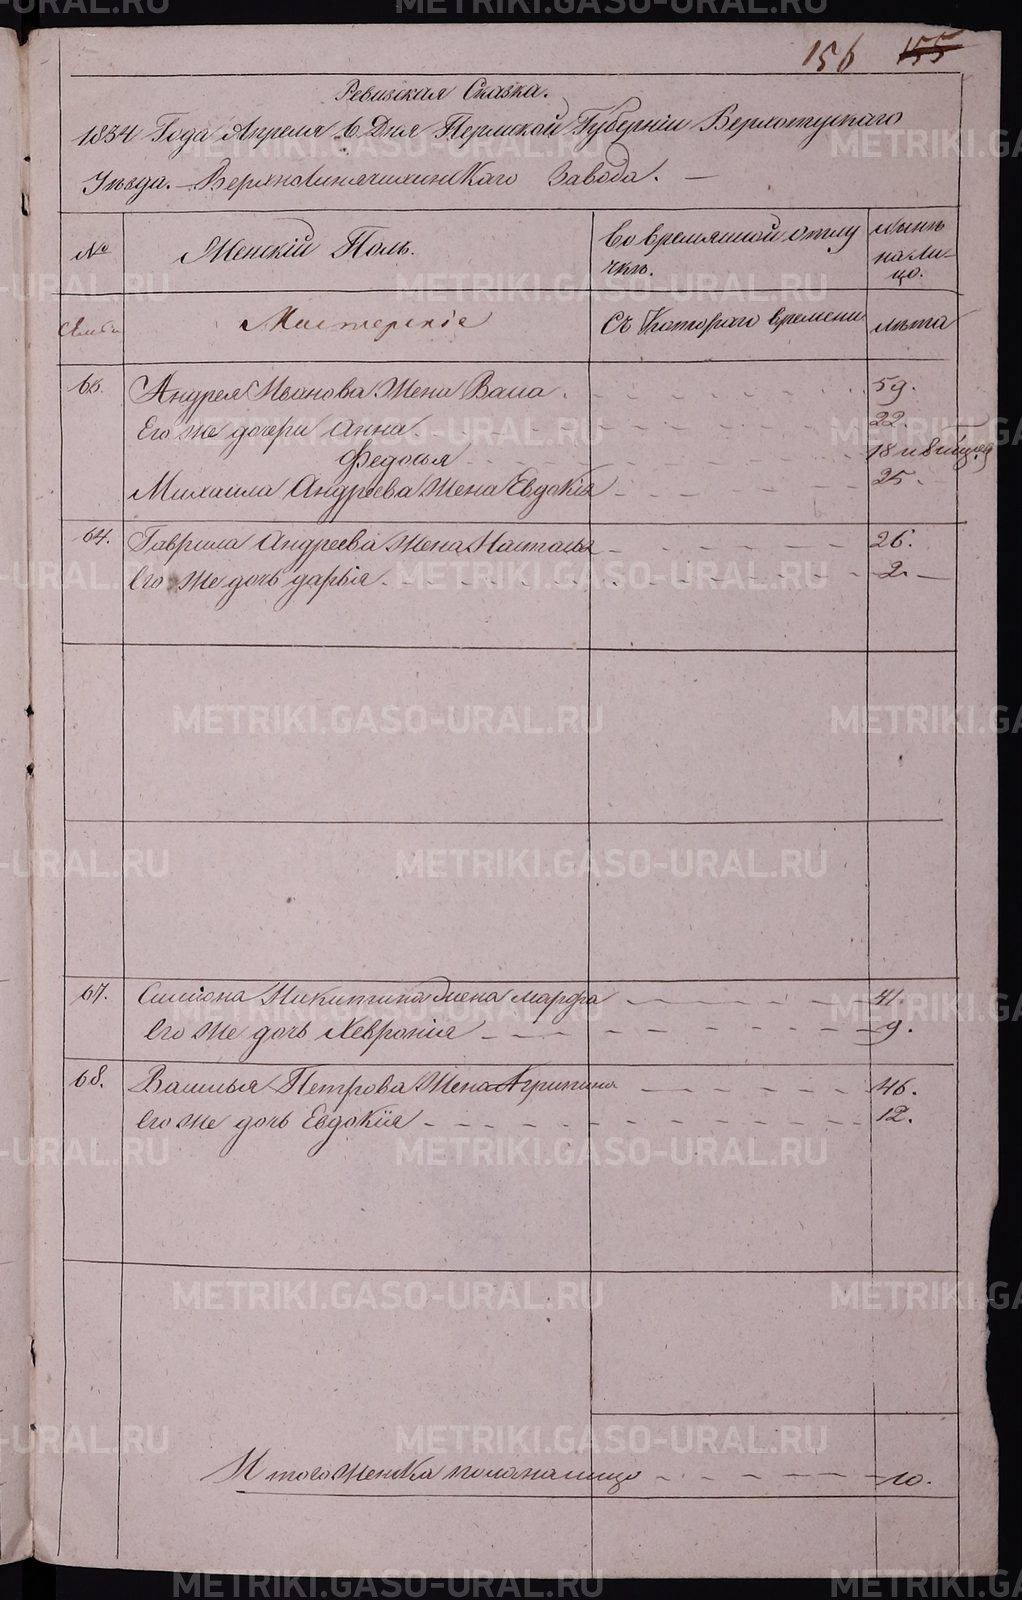 156 155
Ревизская Сказка.
1834 Года Апреля 6 Дня Пермской Губернiи Верхотускаго
Уезда. Верхнесинячихинскаго Завода. —
№ Женскiй Полъ. Во временной отлу чке. Ныне на ли- цо.
Семьи Мастерскiе Съ Котораго времени лета
Андрея Иванова Жена Васа 59.
Его же дочери Анна 22.
Федосья 18
Михаила Андреева Жена Евдокiя 25.
64. Гаврила Андреева Жена Наталья 26.
Его же дочь дарья 2.
67. Симiона Никитина Жена марфа 41.
Его же дочь Хеврония 9.
68. Василья Петрова Жена Агрипина 46.
Его же дочь Евдокiя 12.
Итого женска пола налицо 10.
METRIKI.GASO-URAL.RU